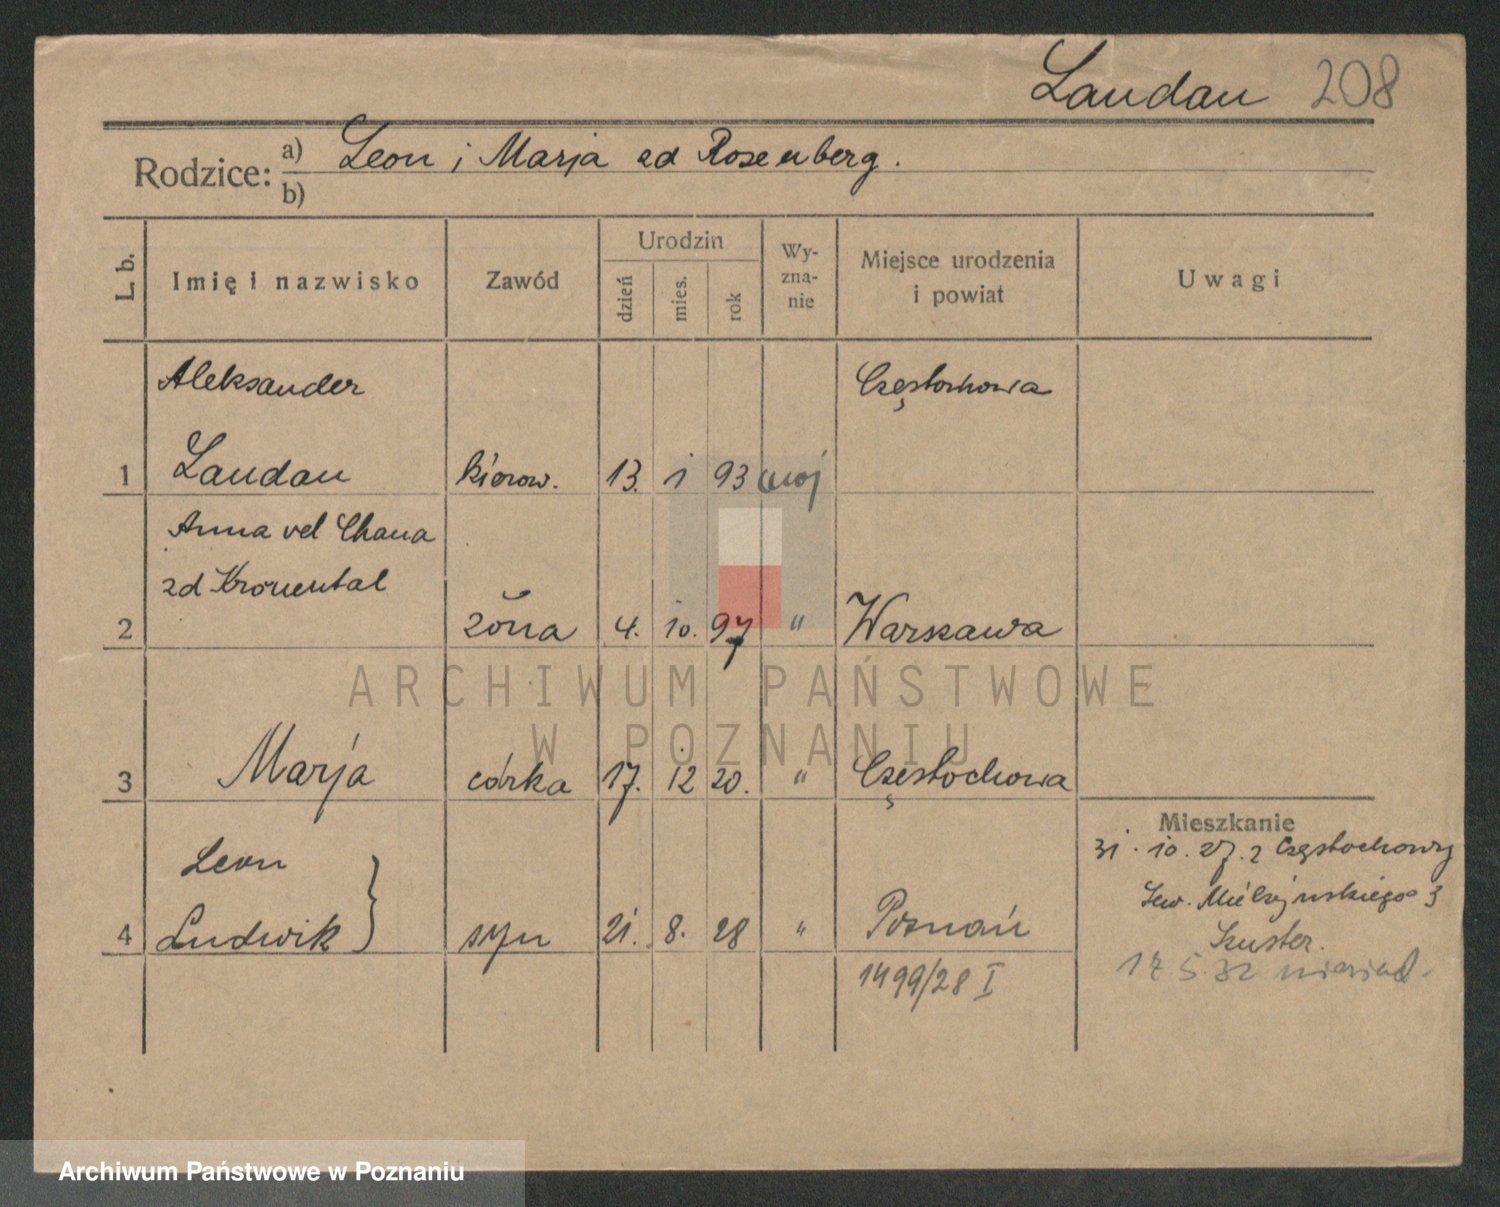 Landau 208
Rodzice: a) Leon i Marja zd Rosenberg.
b)
L. b. Imię i nazwisko Zawód Urodzin dzień mies. rok Wy-zna-nie Miejsce urodzenia i powiat Uwagi
Aleksander Częstochowa
1 Landau kierow. 13. 1 93 moj
Anna vel Chana
zd Kronental
2 żona 4. 10. 97 " Warszawa
ARCHIWUM PAŃSTWOWE
W POZNANIU
3 Marja córka 17. 12 20. " Częstochowa
Mieszkanie
31. 10. 27. z Częstochowy
Leon
Sew. Mielżyńskiego 3
4 Ludwik syn 21. 8. 28 " Poznań
Szuster.
1499/28 I
17 5 32
Archiwum Państwowe w Poznaniu